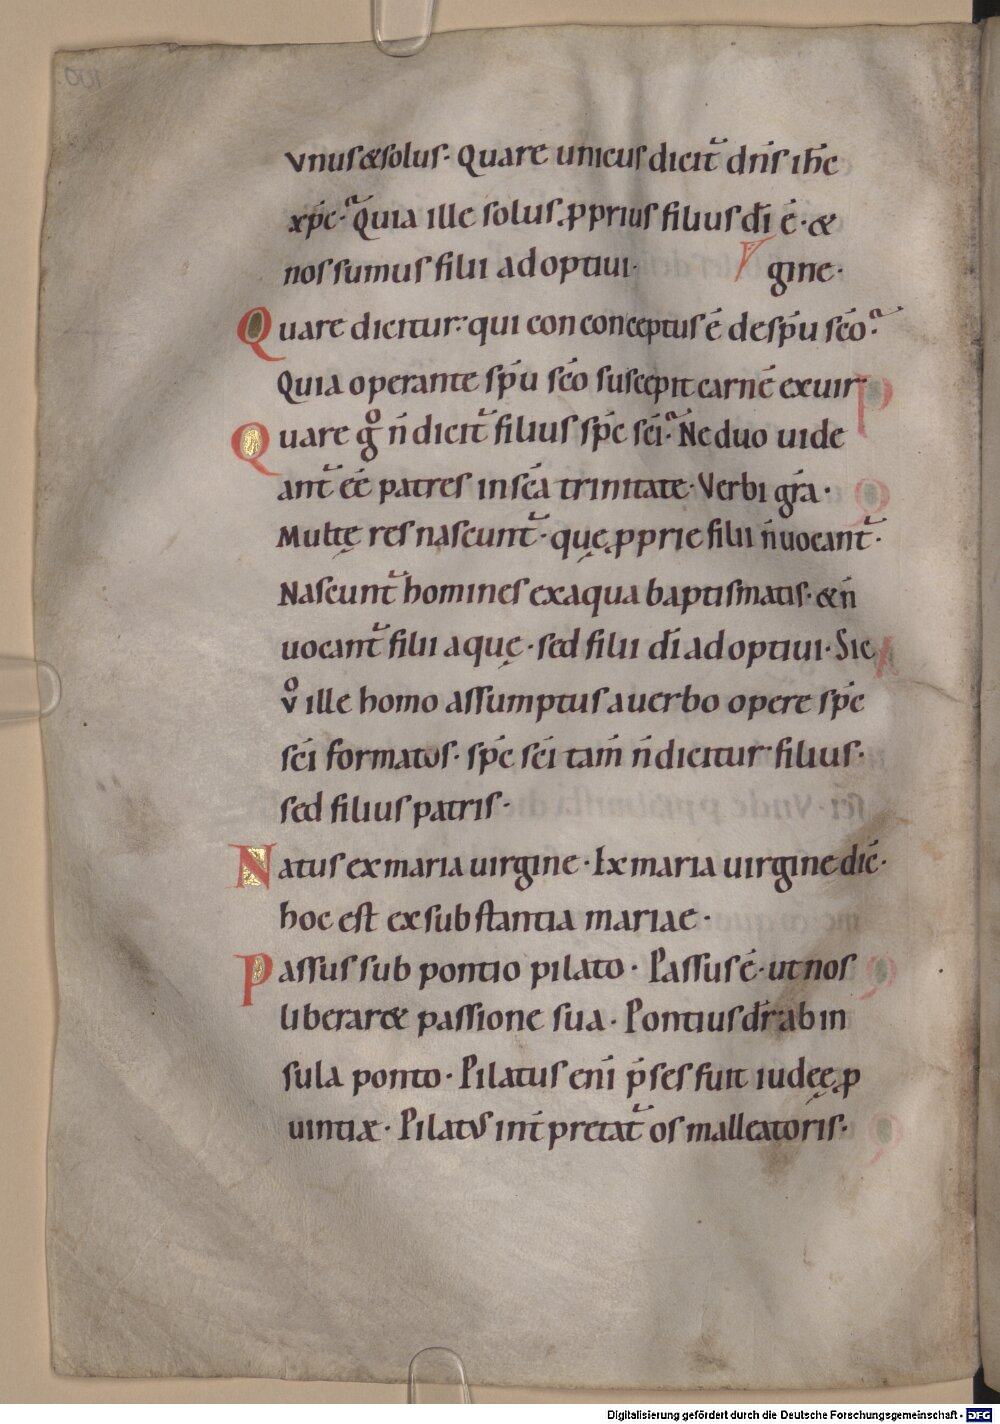 vnus & solus· Quare unicus dicit̃ dñs ihc̄
xp̄c· Quia ille solus ꝓprius filius dī ē· &
nos sumus filii adoptiui· gine·
Quare dicitur· qui conconceptus ē de sp̄u sc̄o?
Quia operante sp̄u sc̄o suscepit carnē ex uir
Quare gͦ n̄ dicit̃ filius sp̄c sc̄i· Ne duo uide
ant̃ eē patres in sc̄a trinitate· Verbi gr̄a·
Multę res nascunt̃· quę ꝓprie filii n̄ uocant̃·
Nascunt̃ homines ex aqua baptismatis· & n̄
uocant̃ filii aquę· sed filii dī adoptiui· Sic
vͦ ille homo assumptus a uerbo opere sp̄c
sc̄i formatus· sp̄c sc̄i tam̄ n̄ dicitur filius·
sed filius patris·
Natus ex maria uirgine· Ex maria uirgine dic̄·
hoc est ex substantia mariae·
Passus sub pontio pilato· Passus ē· ut nos
liberar& passione sua· Pontius dr̄ ab in
sula ponto· Pilatus enī p̄ses fuit iudeę ꝓ
uintiæ· Pilatus int̄pretat̃ os malleatoris·
Digitalisierung gefördert durch die Deutsche Forschungsgemeinschaft - DFG